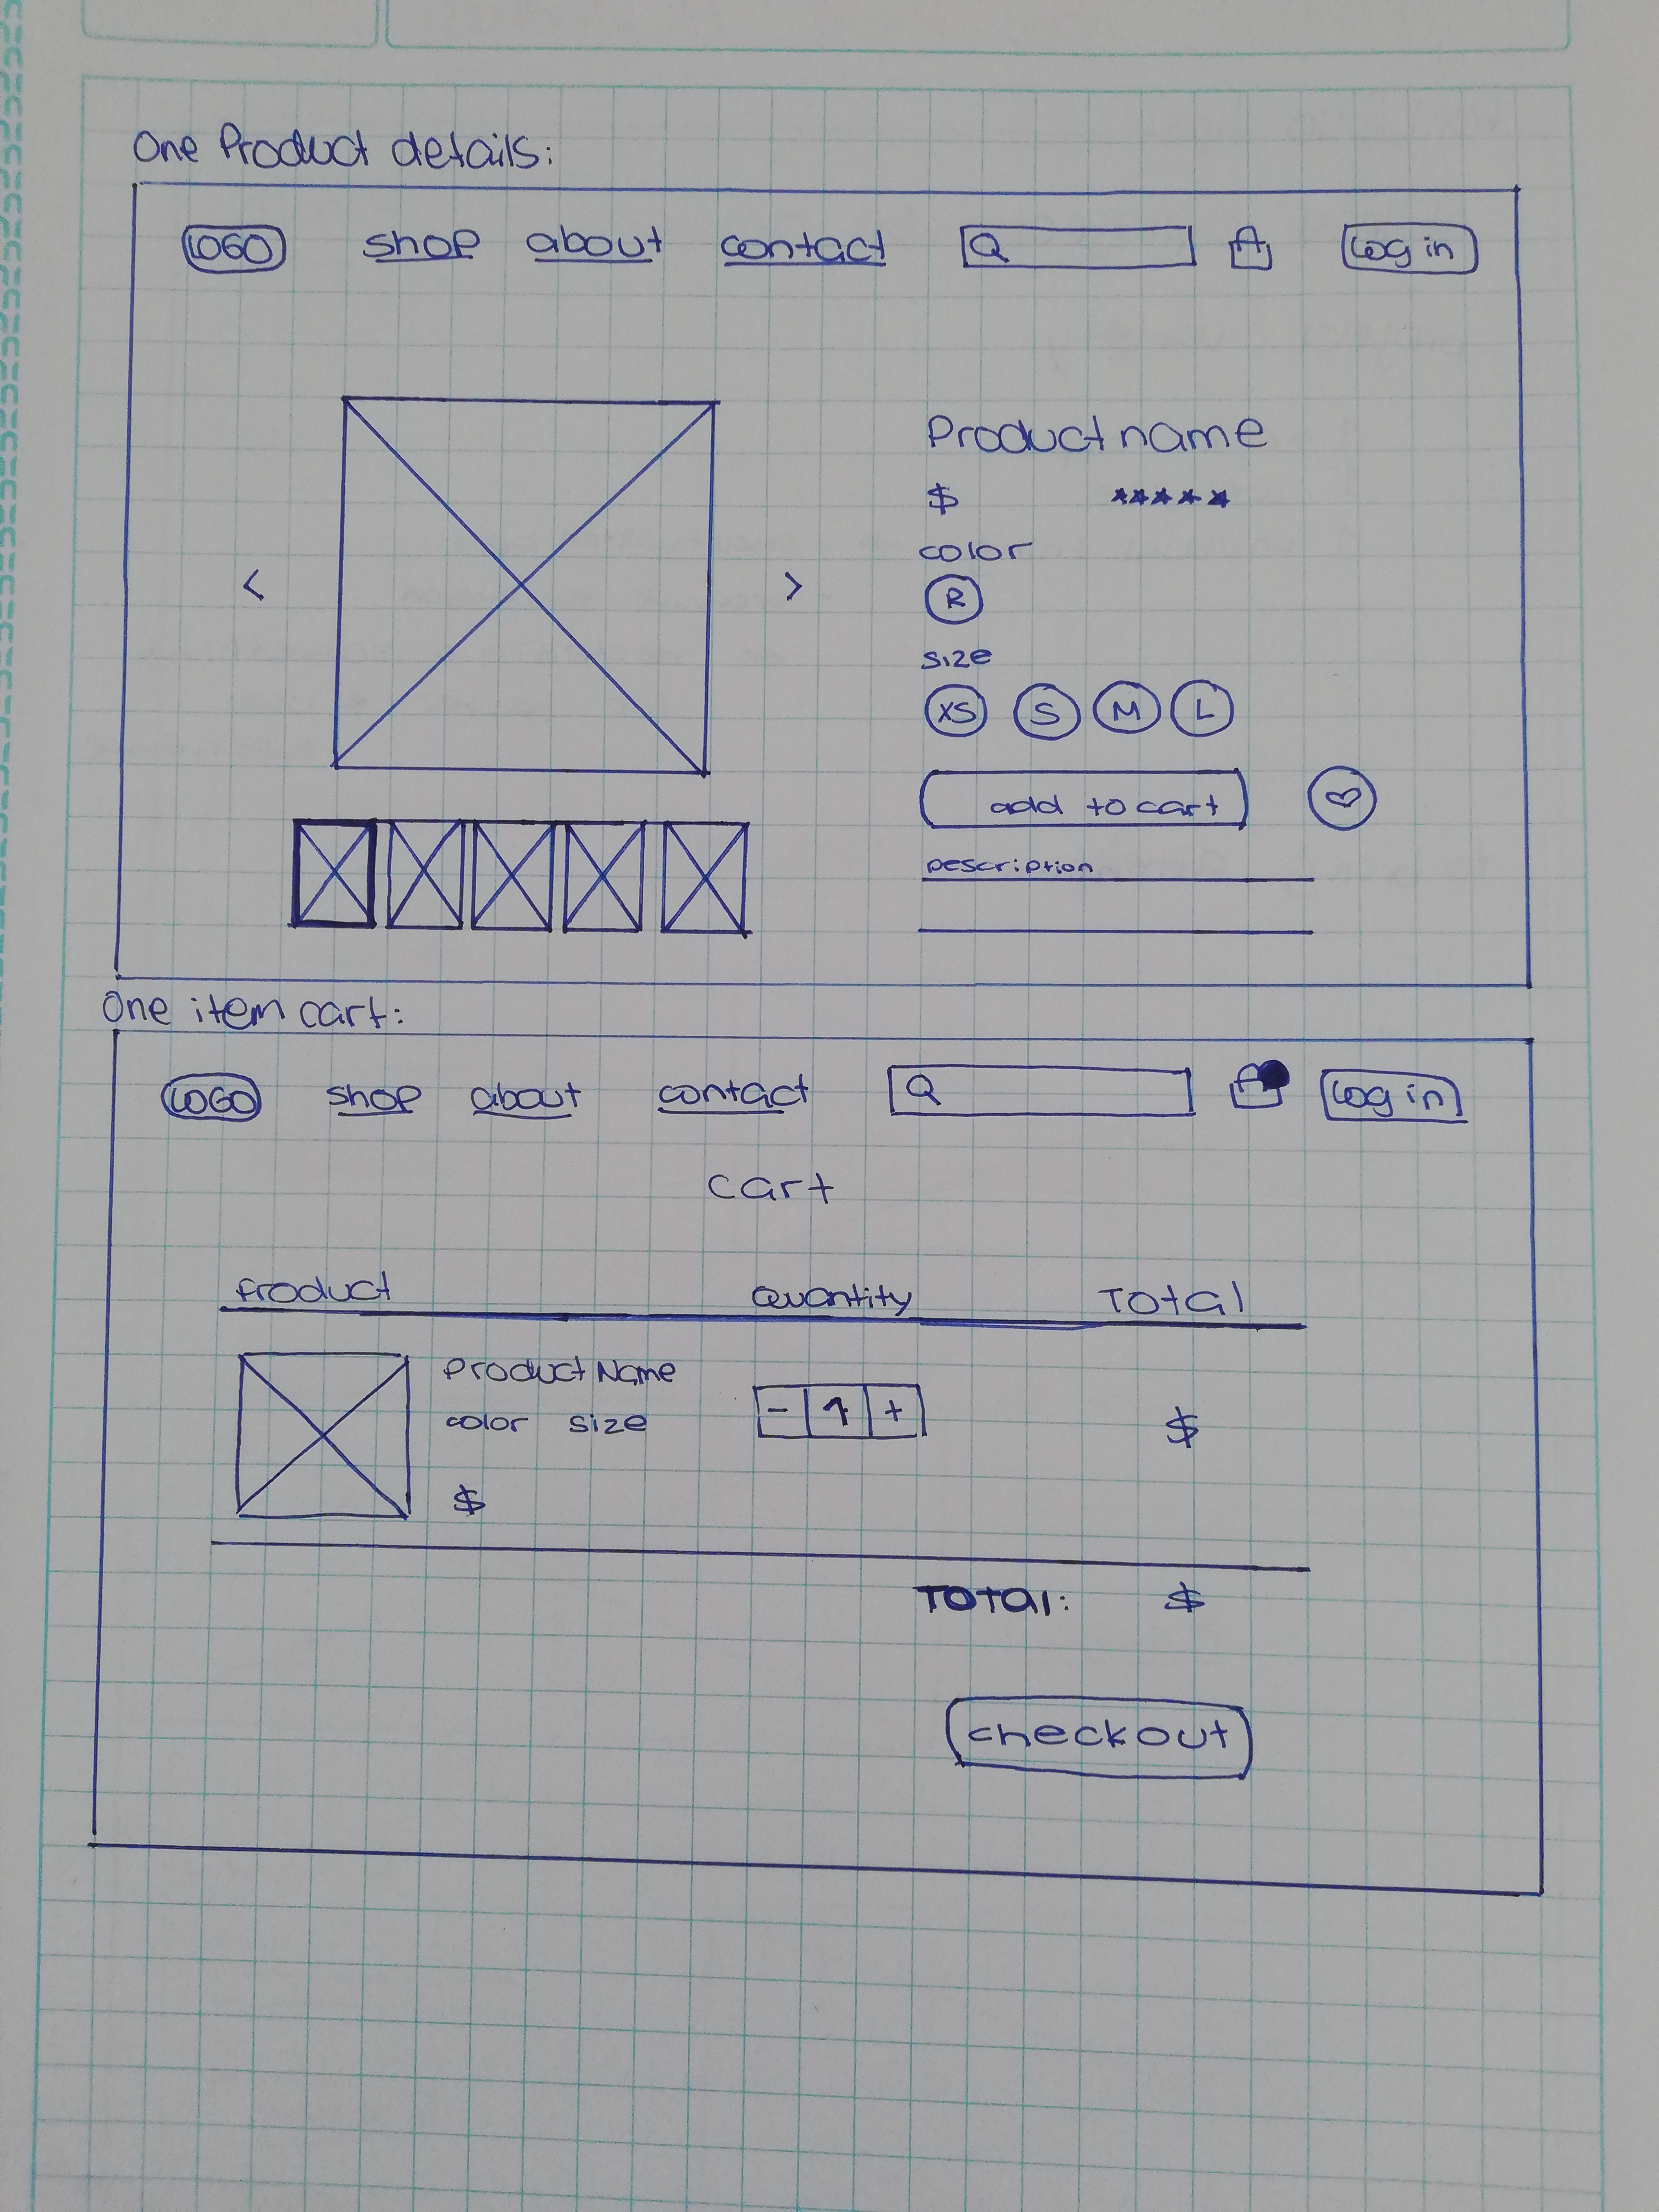 One Product details:
LOGO shop about contact Log in
Product name
$ *****
color
R
size
XS S M L
add to cart
Description
One item cart:
LOGO shop about contact Log in
cart
Product Quantity Total
Product Name
color size - 1 + $
$
TOTAL: $
checkout